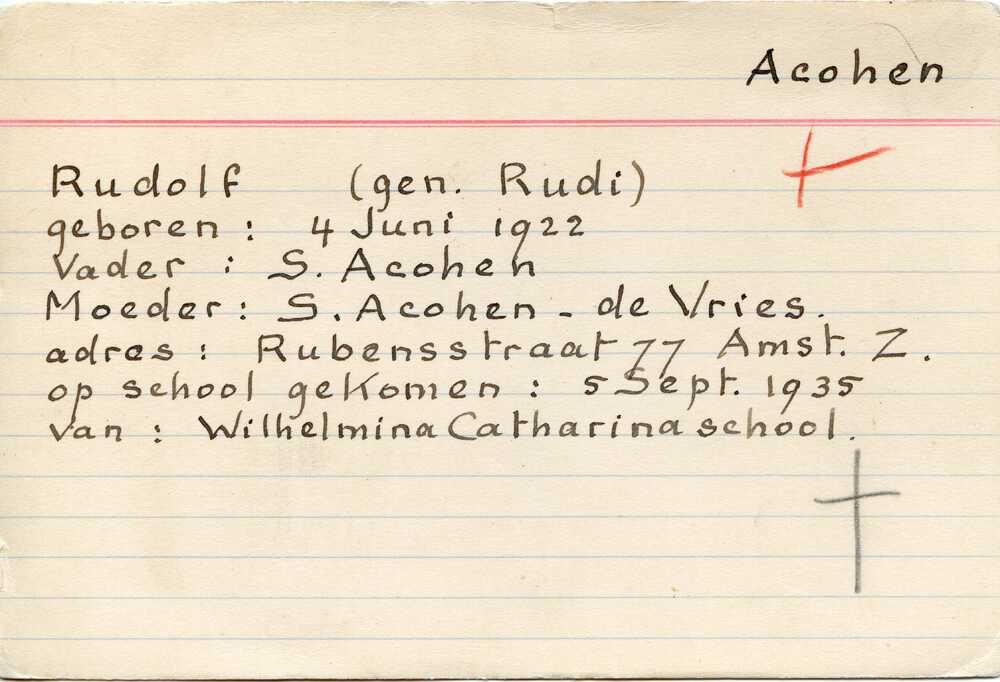 Acohen
Rudolf (gen. Rudi)
geboren : 4 Juni 1922
Vader : S. Acohen
Moeder : S. Acohen - de Vries.
adres : Rubensstraat 77 Amst. Z.
op school gekomen : 5 Sept. 1935
van : Wilhelmina Catharina school.